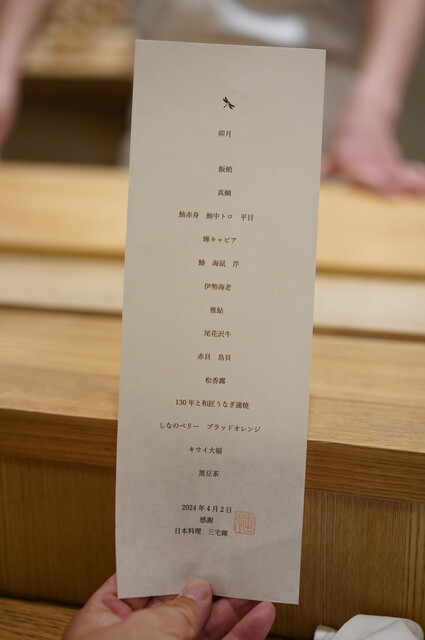 卯月
飯蛸
真鯛
鮪赤身　鮪中トロ　平目
輝キャビア
海鼠　芹
伊勢海老
稚鮎
尾花沢牛
赤貝　鳥貝
松香露
130年と和匠うなぎ蒲焼
しなのベリー　ブラッドオレンジ
キウイ大福
黒豆茶
2024年4月2日
感謝
日本料理　三宅輝